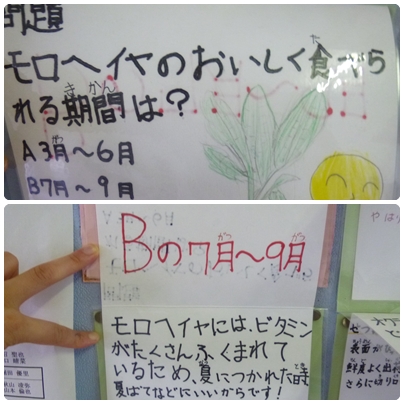 問題
モロヘイヤのおいしく食べら
れる期間は？
A 3月～6月
B 7月～9月
Bの7月～9月
モロヘイヤには、ビタミン
がたくさんふくまれて
いるため、夏につかれた時
夏ばてなどにいいからです！
やはり
表面が
鮮度よく出
さらに切り口